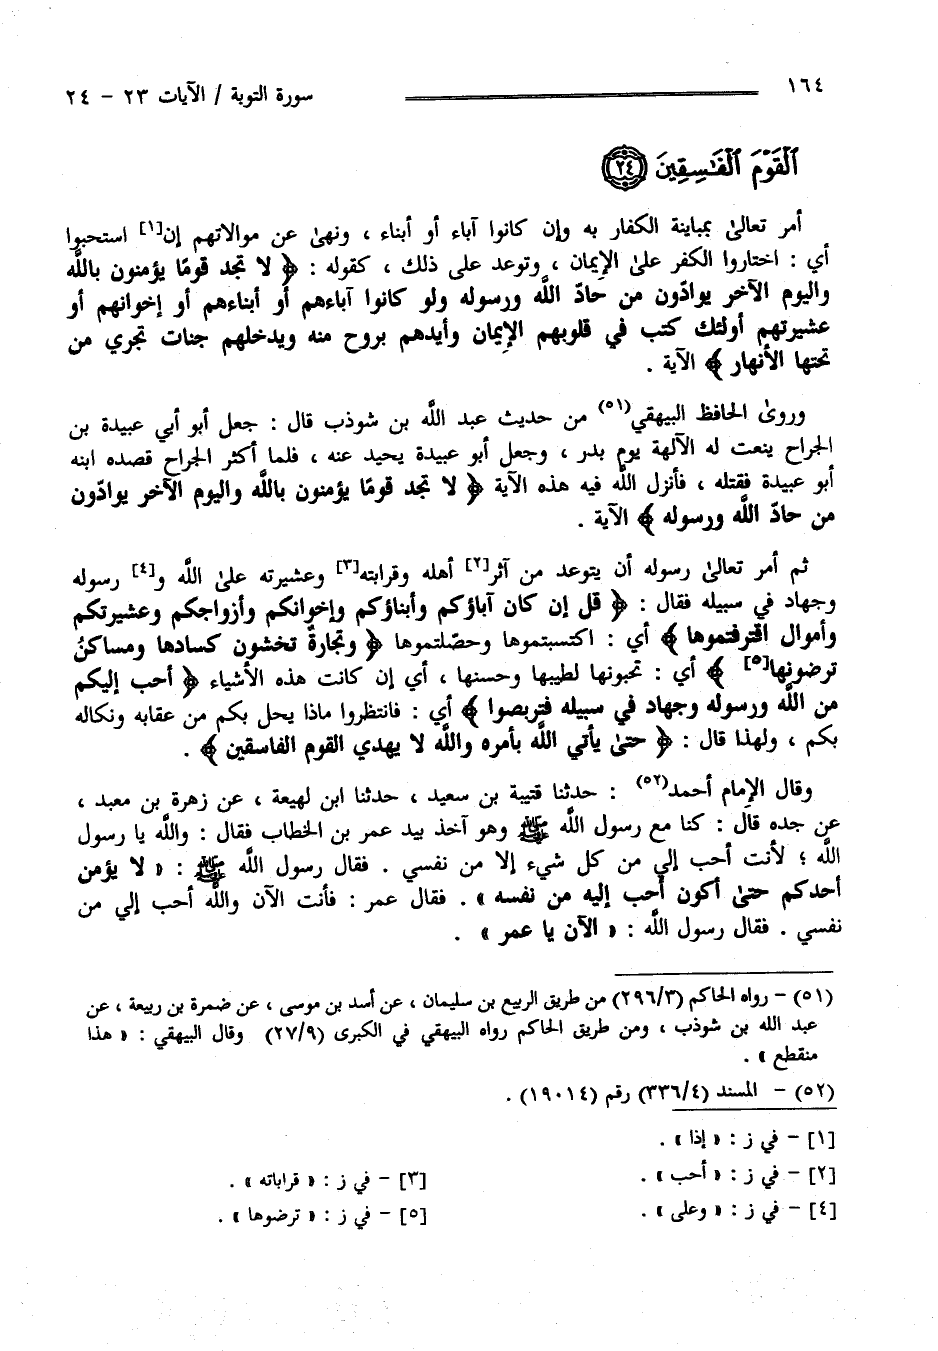 ١٦٤ سورة التوبة / الآيات ٢٣ - ٢٤
ٱلْقَوْمَ ٱلْفَٰسِقِينَ ﴿٢٤﴾
أمر تعالىٰ بمباينة الكفار به وإن كانوا آباء أو أبناء ، ونهىٰ عن موالاتهم إن[١] استحبوا
أي : اختاروا الكفر علىٰ الإيمان ، وتوعد على ذلك ، كقوله : ﴿ لا تجد قومًا يؤمنون باللَّه
واليوم الآخر يوادّون من حادّ اللَّه ورسوله ولو كانوا آباءهم أو أبناءهم أو إخوانهم أو
عشيرتهم أولئك كتب في قلوبهم الإيمان وأيدهم بروح منه ويدخلهم جنات تجري من
تحتها الأنهار ﴾ الآية .
وروىٰ الحافظ البيهقي(٥١) من حديث عبد اللَّه بن شوذب قال : جعل أبو أبي عبيدة بن
الجراح ينعت له الآلهة يوم بدر ، وجعل أبو عبيدة يحيد عنه ، فلما أكثر الجراح قصده ابنه
أبو عبيدة فقتله ، فأنزل اللَّه فيه هذه الآية ﴿ لا تجد قومًا يؤمنون باللَّه واليوم الآخر يوادّون
من حادّ اللَّه ورسوله ﴾ الآية .
ثم أمر تعالىٰ رسوله أن يتوعد من آثر[٢] أهله وقرابته[٣] وعشيرته علىٰ اللَّه و[٤] رسوله
وجهاد في سبيله فقال : ﴿ قل إن كان آباؤكم وأبناؤكم وإخوانكم وأزواجكم وعشيرتكم
وأموال اقترفتموها ﴾ أي : اكتسبتموها وحصّلتموها ﴿ وتجارةٌ تخشون كسادها ومساكنُ
ترضونها[٥] ﴾ أي : تحبونها لطيبها وحسنها ، أي إن كانت هذه الأشياء ﴿ أحب إليكم
من اللَّه ورسوله وجهاد في سبيله فتربصوا ﴾ أي : فانتظروا ماذا يحل بكم من عقابه ونكاله
بكم ، ولهذا قال : ﴿ حتىٰ يأتي اللَّه بأمره واللَّه لا يهدي القوم الفاسقين ﴾ .
وقال الإمام أحمد(٥٢) : حدثنا قتيبة بن سعيد ، حدثنا ابن لهيعة ، عن زهرة بن معبد ،
عن جده قال : كنا مع رسول اللَّه ﷺ وهو آخذ بيد عمر بن الخطاب فقال : واللَّه يا رسول
اللَّه ؛ لأنت أحب إلي من كل شيء إلا من نفسي . فقال رسول اللَّه ﷺ : « لا يؤمن
أحدكم حتىٰ أكون أحب إليه من نفسه » . فقال عمر : فأنت الآن واللَّه أحب إلي من
نفسي . فقال رسول اللَّه : « الآن يا عمر » .
(٥١) - رواه الحاكم (٢٩٦/٣) من طريق الربيع بن سليمان ، عن أسد بن موسى ، عن ضمرة بن ربيعة ، عن
عبد الله بن شوذب ، ومن طريق الحاكم رواه البيهقي في الكبرى (٢٧/٩) وقال البيهقي : « هذا
منقطع » .
(٥٢) - المسند (٣٣٦/٤) رقم (١٩٠١٤) .
[١] - في ز : « إذا » .
[٢] - في ز : « أحب » . [٣] - في ز : « قراباته » .
[٤] - في ز : « وعلى » . [٥] - في ز : « ترضوها » .